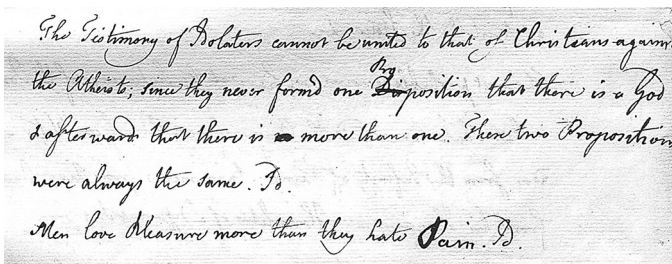 The Testimony of Idolaters cannot be united to that of Christians against
the Atheists; since they never form'd one Proposition that there is a God
& afterwards that there is more than one. These two Propositions
were always the same. Id.
Men love Pleasure more than they hate Pain. Id.